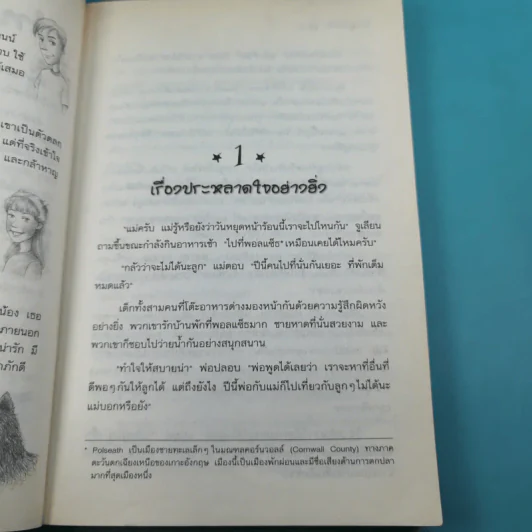 นน์
อบ ใช้
ด้เสมอ
เขาเป็นตัวตลก
แต่ที่จริงเข้าใจ
และกล้าหาญ
น้อง เธอ
ภายนอก
น่ารัก มี
ภักดี
1
เรื่องประหลาดใจอย่างยิ่ง
"แม่ครับ แม่รู้หรือยังว่าวันหยุดหน้าร้อนนี้เราจะไปไหนกัน" จูเลียน
ถามขึ้นขณะกำลังกินอาหารเช้า "ไปที่พอลแซ็ธ* เหมือนเคยได้ไหมครับ"
"กลัวว่าจะไม่ได้นะลูก" แม่ตอบ "ปีนี้คนไปที่นั่นกันเยอะ ที่พักเต็ม
หมดแล้ว"
เด็กทั้งสามคนที่โต๊ะอาหารต่างมองหน้ากันด้วยความรู้สึกผิดหวัง
อย่างยิ่ง พวกเขารักบ้านพักที่พอลแซ็ธมาก ชายหาดที่นั่นสวยงาม และ
พวกเขาก็ชอบไปว่ายน้ำกันอย่างสนุกสนาน
"ทำใจให้สบายน่า" พ่อปลอบ "พ่อพูดได้เลยว่า เราจะหาที่อื่นที่
ดีพอๆ กันให้ลูกได้ แต่ถึงยังไง ปีนี้พ่อกับแม่ก็ไปเที่ยวกับลูกๆ ไม่ได้นะ
แม่บอกหรือยัง"
* Polseath เป็นเมืองชายทะเลเล็กๆ ในมณฑลคอร์นวอลล์ (Cornwall County) ทางภาค
ตะวันตกเฉียงเหนือของเกาะอังกฤษ เมืองนี้เป็นเมืองพักผ่อนและมีชื่อเสียงด้านการตกปลา
มากที่สุดเมืองหนึ่ง